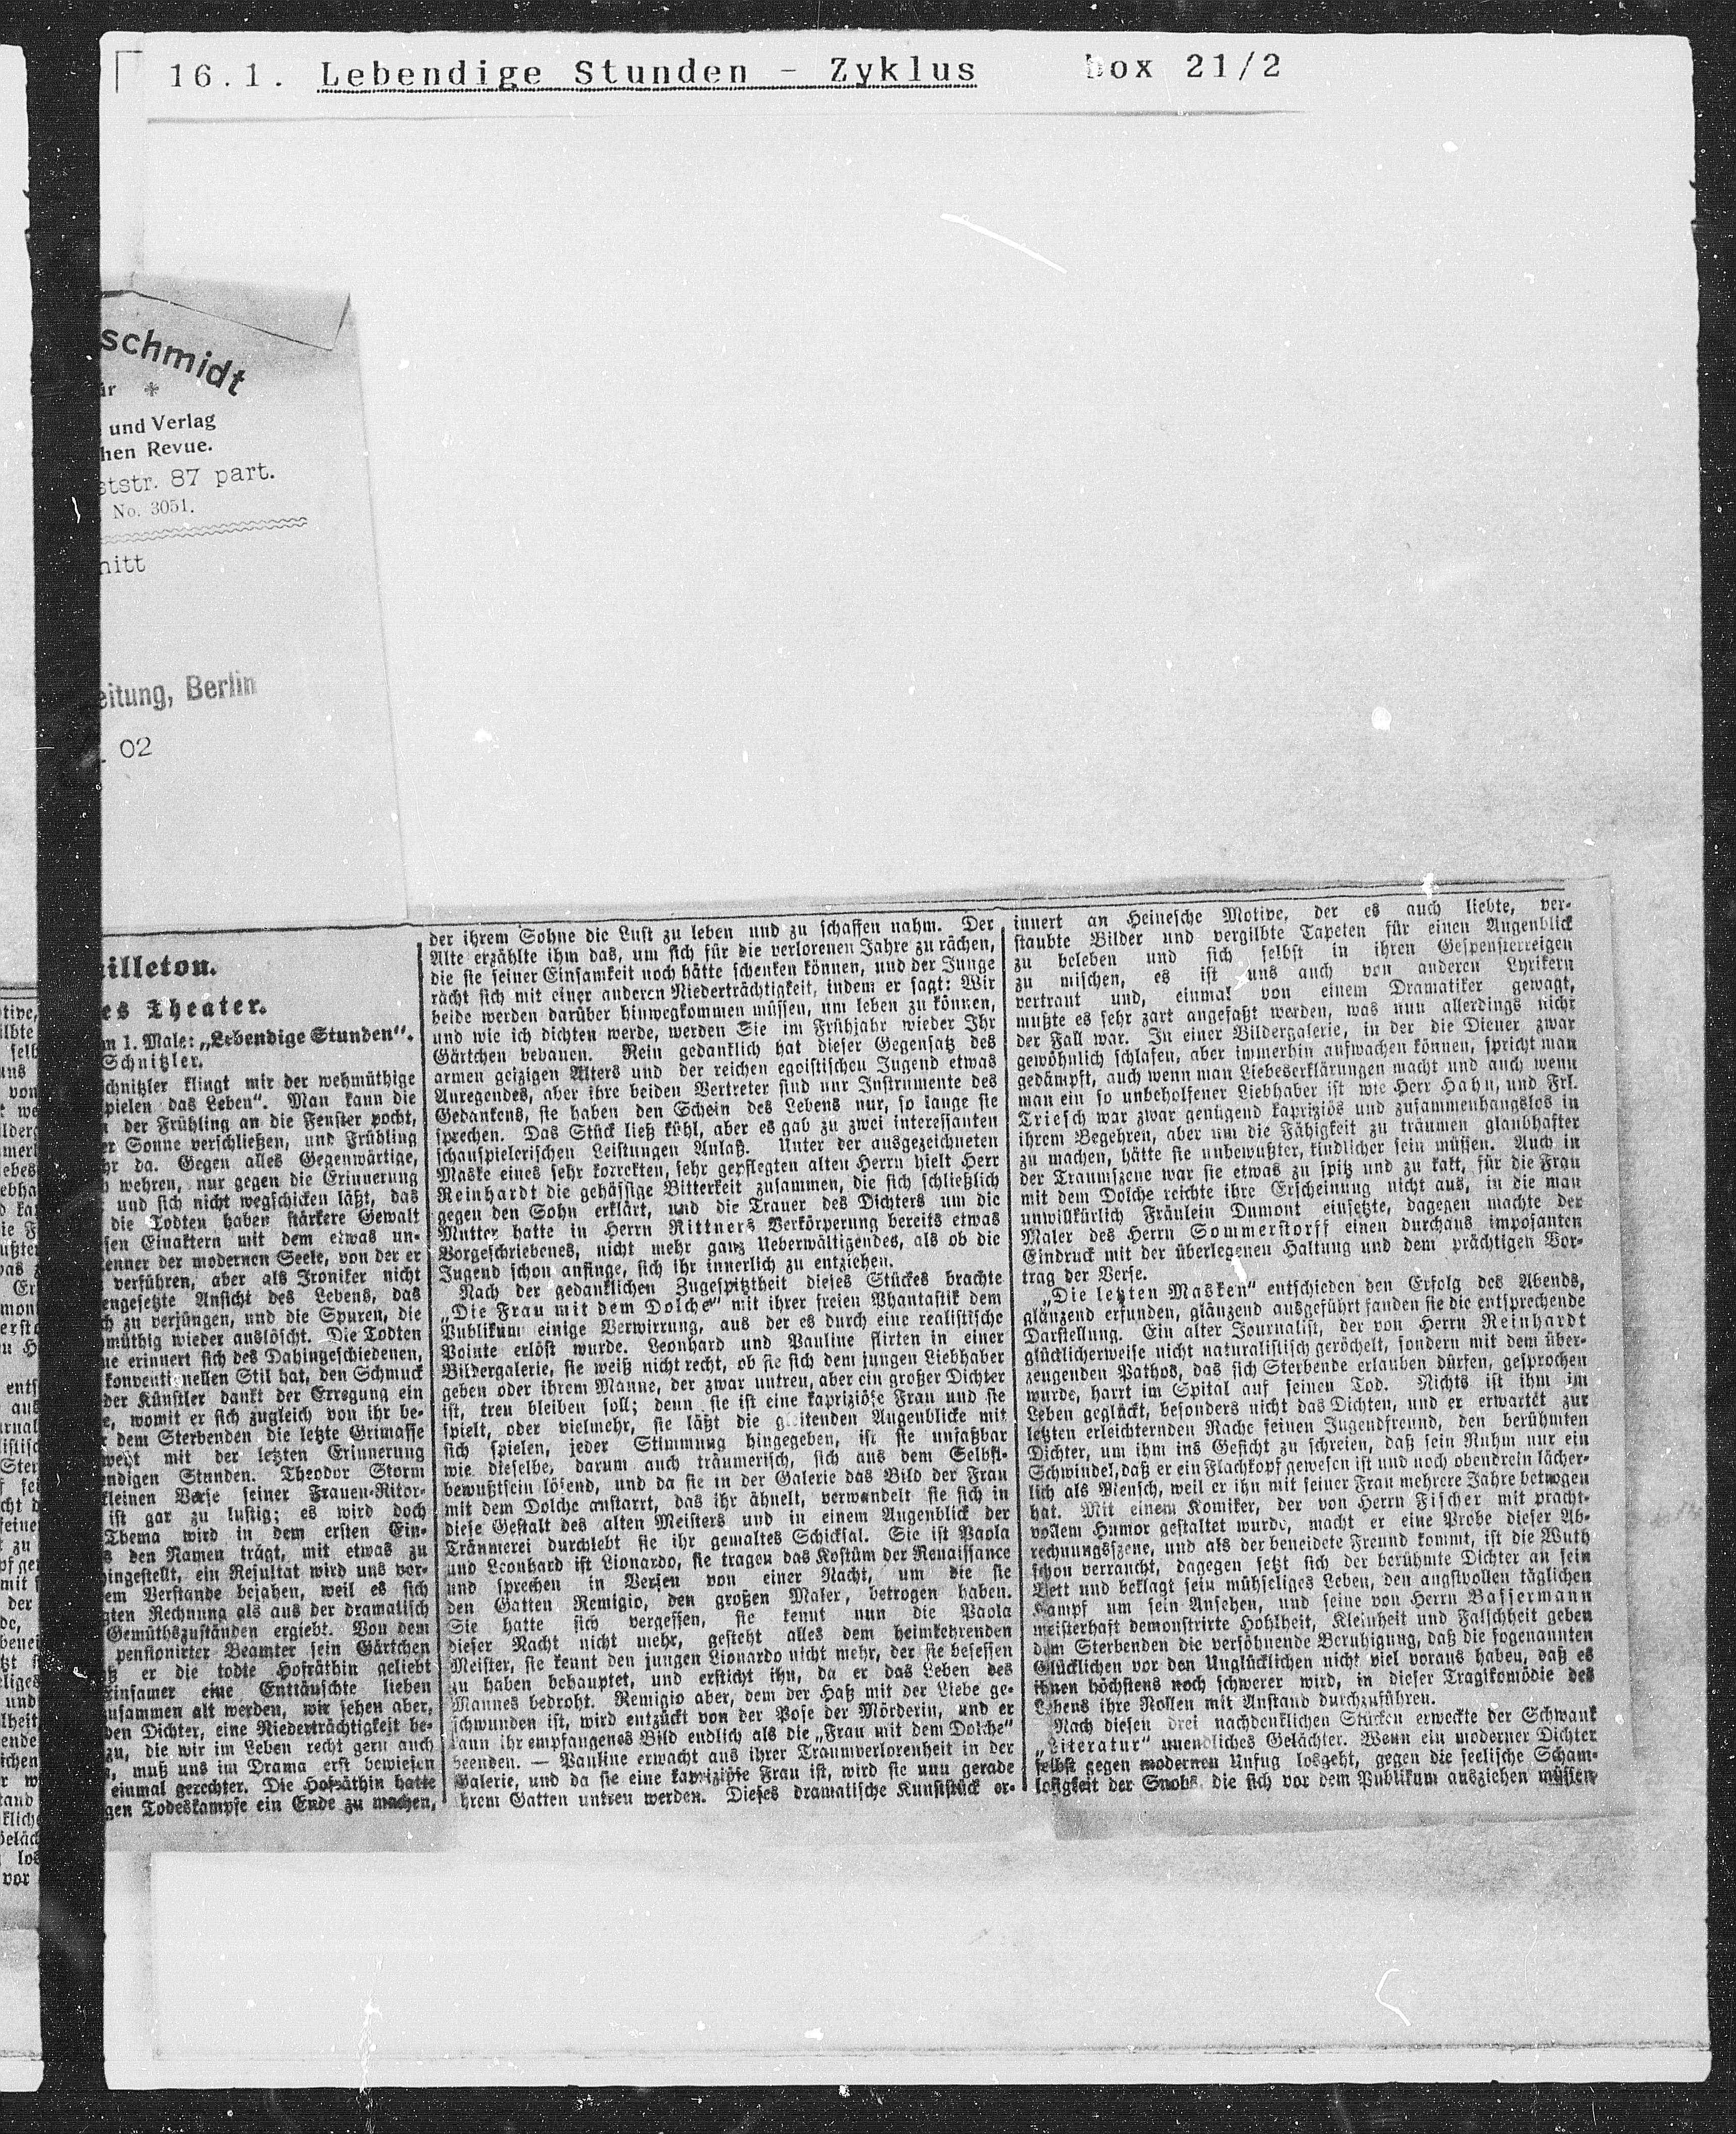 16.1. Lebendige Stunden - Zyklus box 21/2
schmidt
ür *
und Verlag
hen Revue.
ststr. 87 part.
No. 3051.
nitt
eitung, Berlin
. 02
illeton.
es Theater.
m 1. Male: „Lebendige Stunden“.
Schnitzler.
chnitzler klingt mir der wehmüthige
pielen das Leben“. Man kann die
der Frühling an die Fenster pocht,
er Sonne verschließen, und Frühling
hr da. Gegen alles Gegenwärtige,
wehren, nur gegen die Erinnerung
und sich nicht wegschicken läßt, das
die Todten haben stärkere Gewalt
sen Einaktern mit dem etwas un-
enner der modernen Seele, von der er
verführen, aber als Ironiker nicht
engesetzte Ansicht des Lebens, das
h zu verjüngen, und die Spuren, die
müthig wieder auslöscht. Die Todten
ne erinnert sich des Dahingeschiedenen,
konventionellen Stil hat, den Schmuck
der Künstler dankt der Erregung ein
e, womit er sich zugleich von ihr be-
dem Sterbenden die letzte Grimasse
weht mit der letzten Erinnerung
endigen Stunden. Theodor Storm
kleinen Verse seiner Frauen-Ritor-
ist gar zu lustig; es wird doch
Thema wird in dem ersten Ein-
s den Namen trägt, mit etwas zu
hingestellt, ein Resultat wird uns vor-
em Verstande bejahen, weil es sich
gten Rechnung als aus der dramatisch
Gemüthszuständen ergiebt. Von dem
pensionirter Beamter sein Gärtchen
ß er die todte Hofräthin geliebt
Einsamer eine Enttäuschte lieben
usammen alt werden, wir sehen aber,
den Dichter, eine Niederträchtigkeit be-
zu, die wir im Leben recht gern auch
, muß uns im Drama erst bewiesen
einmal gerechter. Die Hofräthin hatte
gen Todeskampfe ein Ende zu machen,
der ihrem Sohne die Lust zu leben und zu schaffen nahm. Der
Alte erzählte ihm das, um sich für die verlorenen Jahre zu rächen,
die sie seiner Einsamkeit noch hätte schenken können, und der Junge
rächt sich mit einer anderen Niederträchtigkeit, indem er sagt: Wir
beide werden darüber hinwegkommen müssen, um leben zu können,
und wie ich dichten werde, werden Sie im Frühjahr wieder Ihr
Gärtchen bebauen. Rein gedanklich hat dieser Gegensatz des
armen geizigen Alters und der reichen egoistischen Jugend etwas
Anregendes, aber ihre beiden Vertreter sind nur Instrumente des
Gedankens, sie haben den Schein des Lebens nur, so lange sie
sprechen. Das Stück ließ kühl, aber es gab zu zwei interessanten
schauspielerischen Leistungen Anlaß. Unter der ausgezeichneten
Maske eines sehr korrekten, sehr gepflegten alten Herrn hielt Herr
Reinhardt die gehässige Bitterkeit zusammen, die sich schließlich
gegen den Sohn erklärt, und die Trauer des Dichters um die
Mutter hatte in Herrn Rittners Verkörperung bereits etwas
Vorgeschriebenes, nicht mehr ganz Ueberwältigendes, als ob die
Jugend schon anfinge, sich ihr innerlich zu entziehen.
Nach der gedanklichen Zugespitztheit dieses Stückes brachte
„Die Frau mit dem Dolche“ mit ihrer freien Phantastik dem
Publikum einige Verwirrung, aus der es durch eine realistische
Pointe erlöst wurde. Leonhard und Pauline flirten in einer
Bildergalerie, sie weiß nicht recht, ob sie sich dem jungen Liebhaber
geben oder ihrem Manne, der zwar untreu, aber ein großer Dichter
ist, treu bleiben soll; denn sie ist eine kapriziöse Frau und sie
spielt, oder vielmehr, sie läßt die gleitenden Augenblicke mit
sich spielen, jeder Stimmung hingegeben, ist sie unfaßbar
wie dieselbe, darum auch träumerisch, sich aus dem Selbst-
bewußtsein lösend, und da sie in der Galerie das Bild der Frau
mit dem Dolche anstarrt, das ihr ähnelt, verwandelt sie sich in
diese Gestalt des alten Meisters und in einem Augenblick der
Träumerei durchlebt sie ihr gemaltes Schicksal. Sie ist Paola
und Leonhard ist Lionardo, sie tragen das Kostüm der Renaissance
und sprechen in Versen von einer Nacht, um die sie
den Gatten Remigio, den großen Maler, betrogen haben.
Sie hatte sich vergessen, sie kennt nun die Paola
dieser Nacht nicht mehr, gesteht alles dem heimkehrenden
Meister, sie kennt den jungen Lionardo nicht mehr, der sie besessen
zu haben behauptet, und ersticht ihn, da er das Leben des
Mannes bedroht. Remigio aber, dem der Haß mit der Liebe ge-
schwunden ist, wird entzückt von der Pose der Mörderin, und er
kann ihr empfangenes Bild endlich als die „Frau mit dem Dolche“
beenden. — Pauline erwacht aus ihrer Traumverlorenheit in der
Galerie, und da sie eine kapriziöse Frau ist, wird sie nun gerade
hrem Gatten untreu werden. Dieses dramatische Kunststück er-
innert an Heinesche Motive, der es auch liebte, ver-
staubte Bilder und vergilbte Tapeten für einen Augenblick
zu beleben und sich selbst in ihren Gespensterreigen
zu mischen, es ist uns auch von anderen Lyrikern
vertraut und, einmal von einem Dramatiker gewagt,
mußte es sehr zart angefaßt werden, was nun allerdings nicht
der Fall war. In einer Bildergalerie, in der die Diener zwar
gewöhnlich schlafen, aber immerhin aufwachen können, spricht man
gedämpft, auch wenn man Liebeserklärungen macht und auch wenn
man ein so unbeholfener Liebhaber ist wie Herr Hahn, und Frl.
Triesch war zwar genügend kapriziös und zusammenhangslos in
ihrem Begehren, aber um die Fähigkeit zu träumen glaubhafter
zu machen, hätte sie unbewußter, kindlicher sein müssen. Auch in
der Traumszene war sie etwas zu spitz und zu kalt, für die Frau
mit dem Dolche reichte ihre Erscheinung nicht aus, in die man
unwillkürlich Fräulein Dumont einsetzte, dagegen machte der
Maler des Herrn Sommerstorff einen durchaus imposanten
Eindruck mit der überlegenen Haltung und dem prächtigen Vor-
trag der Verse.
„Die letzten Masken“ entschieden den Erfolg des Abends,
glänzend erfunden, glänzend ausgeführt fanden sie die entsprechende
Darstellung. Ein alter Journalist, der von Herrn Reinhardt
glücklicherweise nicht naturalistisch geröchelt, sondern mit dem über-
zeugenden Pathos, das sich Sterbende erlauben dürfen, gesprochen
wurde, harrt im Spital auf seinen Tod. Nichts ist ihm im
Leben geglückt, besonders nicht das Dichten, und er erwartet zur
letzten erleichternden Rache seinen Jugendfreund, den berühmten
Dichter, um ihm ins Gesicht zu schreien, daß sein Ruhm nur ein
Schwindel, daß er ein Flachkopf gewesen ist und noch obendrein lächer-
lich als Mensch, weil er ihn mit seiner Frau mehrere Jahre betrogen
hat. Mit einem Komiker, der von Herrn Fischer mit pracht-
vollem Humor gestaltet wurde, macht er eine Probe dieser Ab-
rechnungsszene, und als der beneidete Freund kommt, ist die Wuth
schon verraucht, dagegen setzt sich der berühmte Dichter an sein
Bett und beklagt sein mühseliges Leben, den angstvollen täglichen
Kampf um sein Ansehen, und seine von Herrn Bassermann
meisterhaft demonstrirte Hohlheit, Kleinheit und Falschheit geben
dem Sterbenden die versöhnende Beruhigung, daß die sogenannten
Glücklichen vor den Unglücklichen nicht viel voraus haben, daß es
ihnen höchstens noch schwerer wird, in dieser Tragikomödie des
Lebens ihre Rollen mit Anstand durchzuführen.
Nach diesen drei nachdenklichen Stücken erweckte der Schwank
„Literatur“ unendliches Gelächter. Wenn ein moderner Dichter
selbst gegen modernen Unfug losgeht, gegen die seelische Scham-
losigkeit der Snobs, die sich vor dem Publikum ausziehen müssen